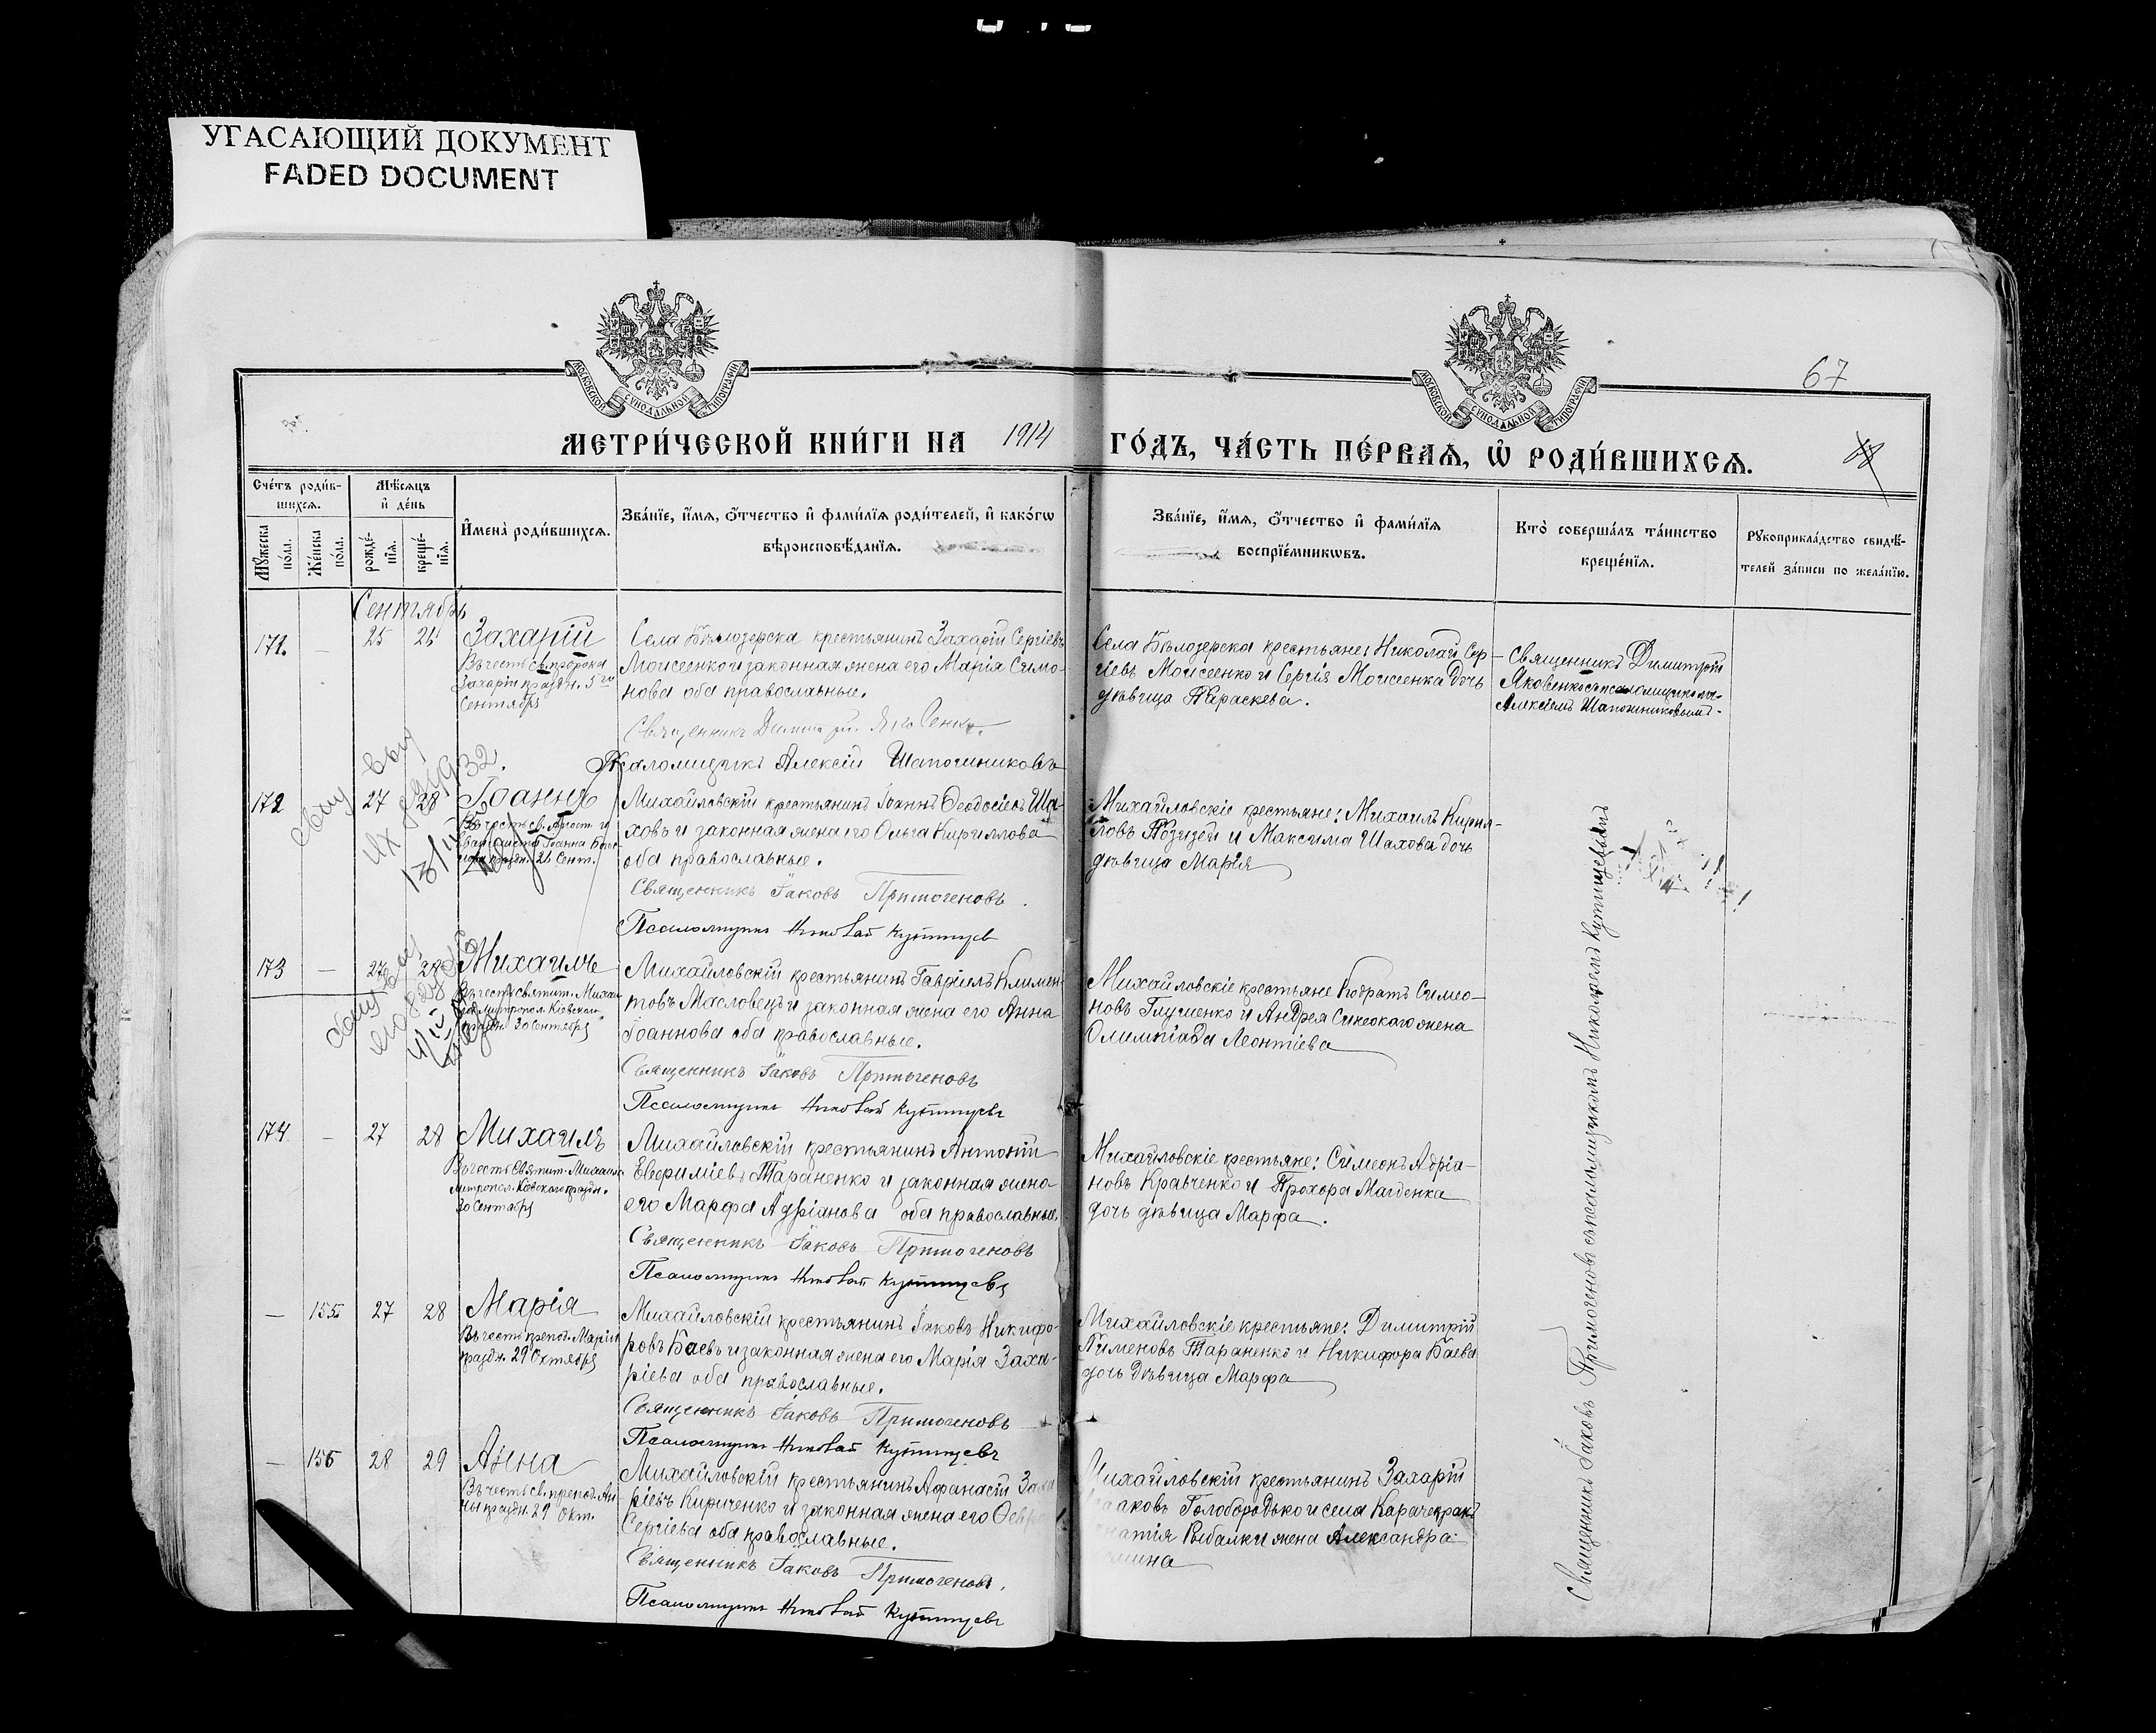 УГАСАЮЩИЙ ДОКУМЕНТ
FADED DOCUMENT
МОСКОВСКОЙ СУНОДАЛЬНОЙ ТИПОГРАФІИ
МОСКОВСКОЙ СУНОДАЛЬНОЙ ТИПОГРАФІИ
67
МЕТРИ́ЧЕСКОЙ КНИ́ГИ НА 1914 ГО́ДЪ, ЧА́СТЬ ПЕ́РВАѦ, Ѡ҆ РОДИ́ВШИХСѦ.
68
Сче́тъ роди́в-
шихсѧ.
Мѣ́сѧцъ
и҆ де́нь
Мꙋ́жеска
по́ла.
Же́нска
по́ла.
рожде́-
нїѧ.
креще́-
нїѧ.
И҆мена̀ роди́вшихсѧ.
Зва́нїе, и҆́мѧ, ѻ҆́тчество и҆ фами́лїѧ роди́телей, и҆ како́гѡ
вѣроисповѣ́данїѧ.
Зва́нїе, и҆́мѧ, ѻ҆́тчество и҆ фами́лїѧ
воспрїе́мникѡвъ.
Кто̀ соверша́лъ та́инство
креще́нїѧ.
Рꙋкоприкла́дство свидѣ́-
телей за́писи по жела́нїю.
Сентябрь
171. — 25 26 Захарій
Въ честь св. пророка
Захаріи праздн. 5го
Сентября
Села Бѣлозерска крестьянинъ Захарій Сергіевъ
Моисеенко и законная жена его Марія Симо-
нова оба православные.
Священникъ Димитрій Яковенко.
Псаломщикъ Алексій Шапошниковъ
Села Бѣлозерска крестьяне: Николай Сер-
гіевъ Моисеенко и Сергія Моисеенка дочь
дѣвица Параскева.
Священникъ Димитрій
Яковенко съ псаломщикомъ
Алексіемъ Шапошниковымъ.
172 27 28 Іоаннъ
Въ честь св. Апост. и
Евангелиста Іоанна Бого-
слова праздн. 26 Сент.
Михайловскій крестьянинъ Іоаннъ Ѳеодосіевъ Ша-
ховъ и законная жена его Ольга Кириллова
оба православные.
Священникъ Іаковъ Примогеновъ.
Псаломщикъ Николай
Михайловскіе крестьяне: Михаилъ Кирил-
ловъ и Максима Шахова дочь
дѣвица Марія
173 — 27 28 Михаилъ
Въ честь Святит. Михаи-
ла Митропол. Кіевскаго
праздн. 30 Сентября
Михайловскій крестьянинъ Гавріилъ Климен-
товъ Масловецъ и законная жена его Анна
Іоаннова оба православные.
Священникъ Іаковъ Примогеновъ
Псаломщикъ Николай
Михайловскіе крестьяне Кодратъ Симео-
новъ Глущенко и Андрея Синеокаго жена
Олимпіада Леонтіева
174 — 27 28 Михаилъ
Въ честь Святит. Михаила
митропол. Кіевскаго праздн.
30 Сентября
Михайловскій крестьянинъ Антоній
Евфиміевъ Тараненко и законная жена
его Марфа Адріанова оба православные.
Священникъ Іаковъ Примогеновъ
Псаломщикъ Николай
Михайловскіе крестьяне: Симеонъ Адріа-
новъ Кравченко и Прохора Магденка
дочь дѣвица Марфа.
— 155 27 28 Марія
Въ честь препод. Маріи
праздн. 29 Октября
Михайловскій крестьянинъ Іаковъ Никифо-
ровъ Баевъ и законная жена его Марія Заха-
ріева оба православные.
Священникъ Іаковъ Примогеновъ
Псаломщикъ Николай
Михайловскіе крестьяне: Димитрій
Пименовъ Тараненко и Никифора Баева
дочь дѣвица Марфа
— 156 28 29 Анна
Въ честь св. препод. Ан-
ны праздн. 29 Окт.
Михайловскій крестьянинъ Афанасій Заха
ріевъ Кириченко и законная жена его
Сергіева оба православные.
Священникъ Іаковъ Примогеновъ.
Псаломщикъ Николай
Михайловскій крестьянинъ Захарій
Голобородько и села Карачекракъ
Рыбалки жена Александра
Священникъ Іаковъ Примогеновъ съ псаломщикомъ Николаемъ